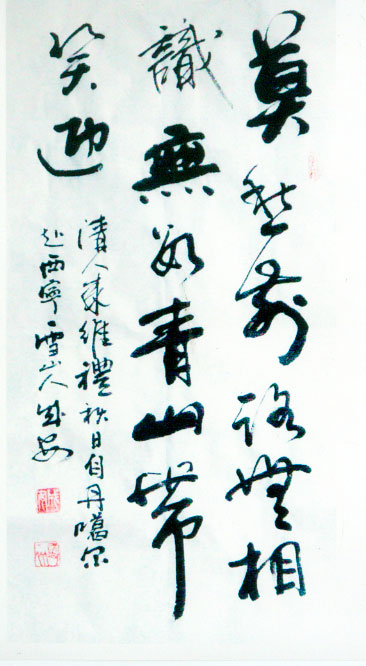 莫愁前路無相
識無數青山帶
笑迎
清人來維禮秋日自丹噶尔
赴西寧雪山人